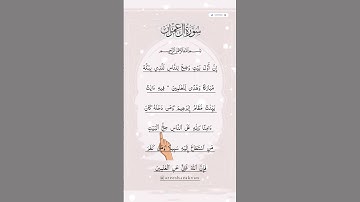 سورة آل عمران
بسم الله الرحمن الرحيم
إِنَّ أَوَّلَ بَيْتٍ وُضِعَ لِلنَّاسِ لَلَّذِي بِبَكَّةَ
مُبَارَكًا وَهُدًى لِّلْعَٰلَمِينَ * فِيهِ ءَايَٰتٌ
بَيِّنَٰتٌ مَّقَامُ إِبْرَٰهِيمَ وَمَن دَخَلَهُ كَانَ
ءَامِنًا وَلِلَّهِ عَلَى النَّاسِ حِجُّ الْبَيْتِ
مَنِ اسْتَطَاعَ إِلَيْهِ سَبِيلًا وَمَن كَفَرَ
فَإِنَّ اللَّهَ غَنِيٌّ عَنِ الْعَٰلَمِينَ